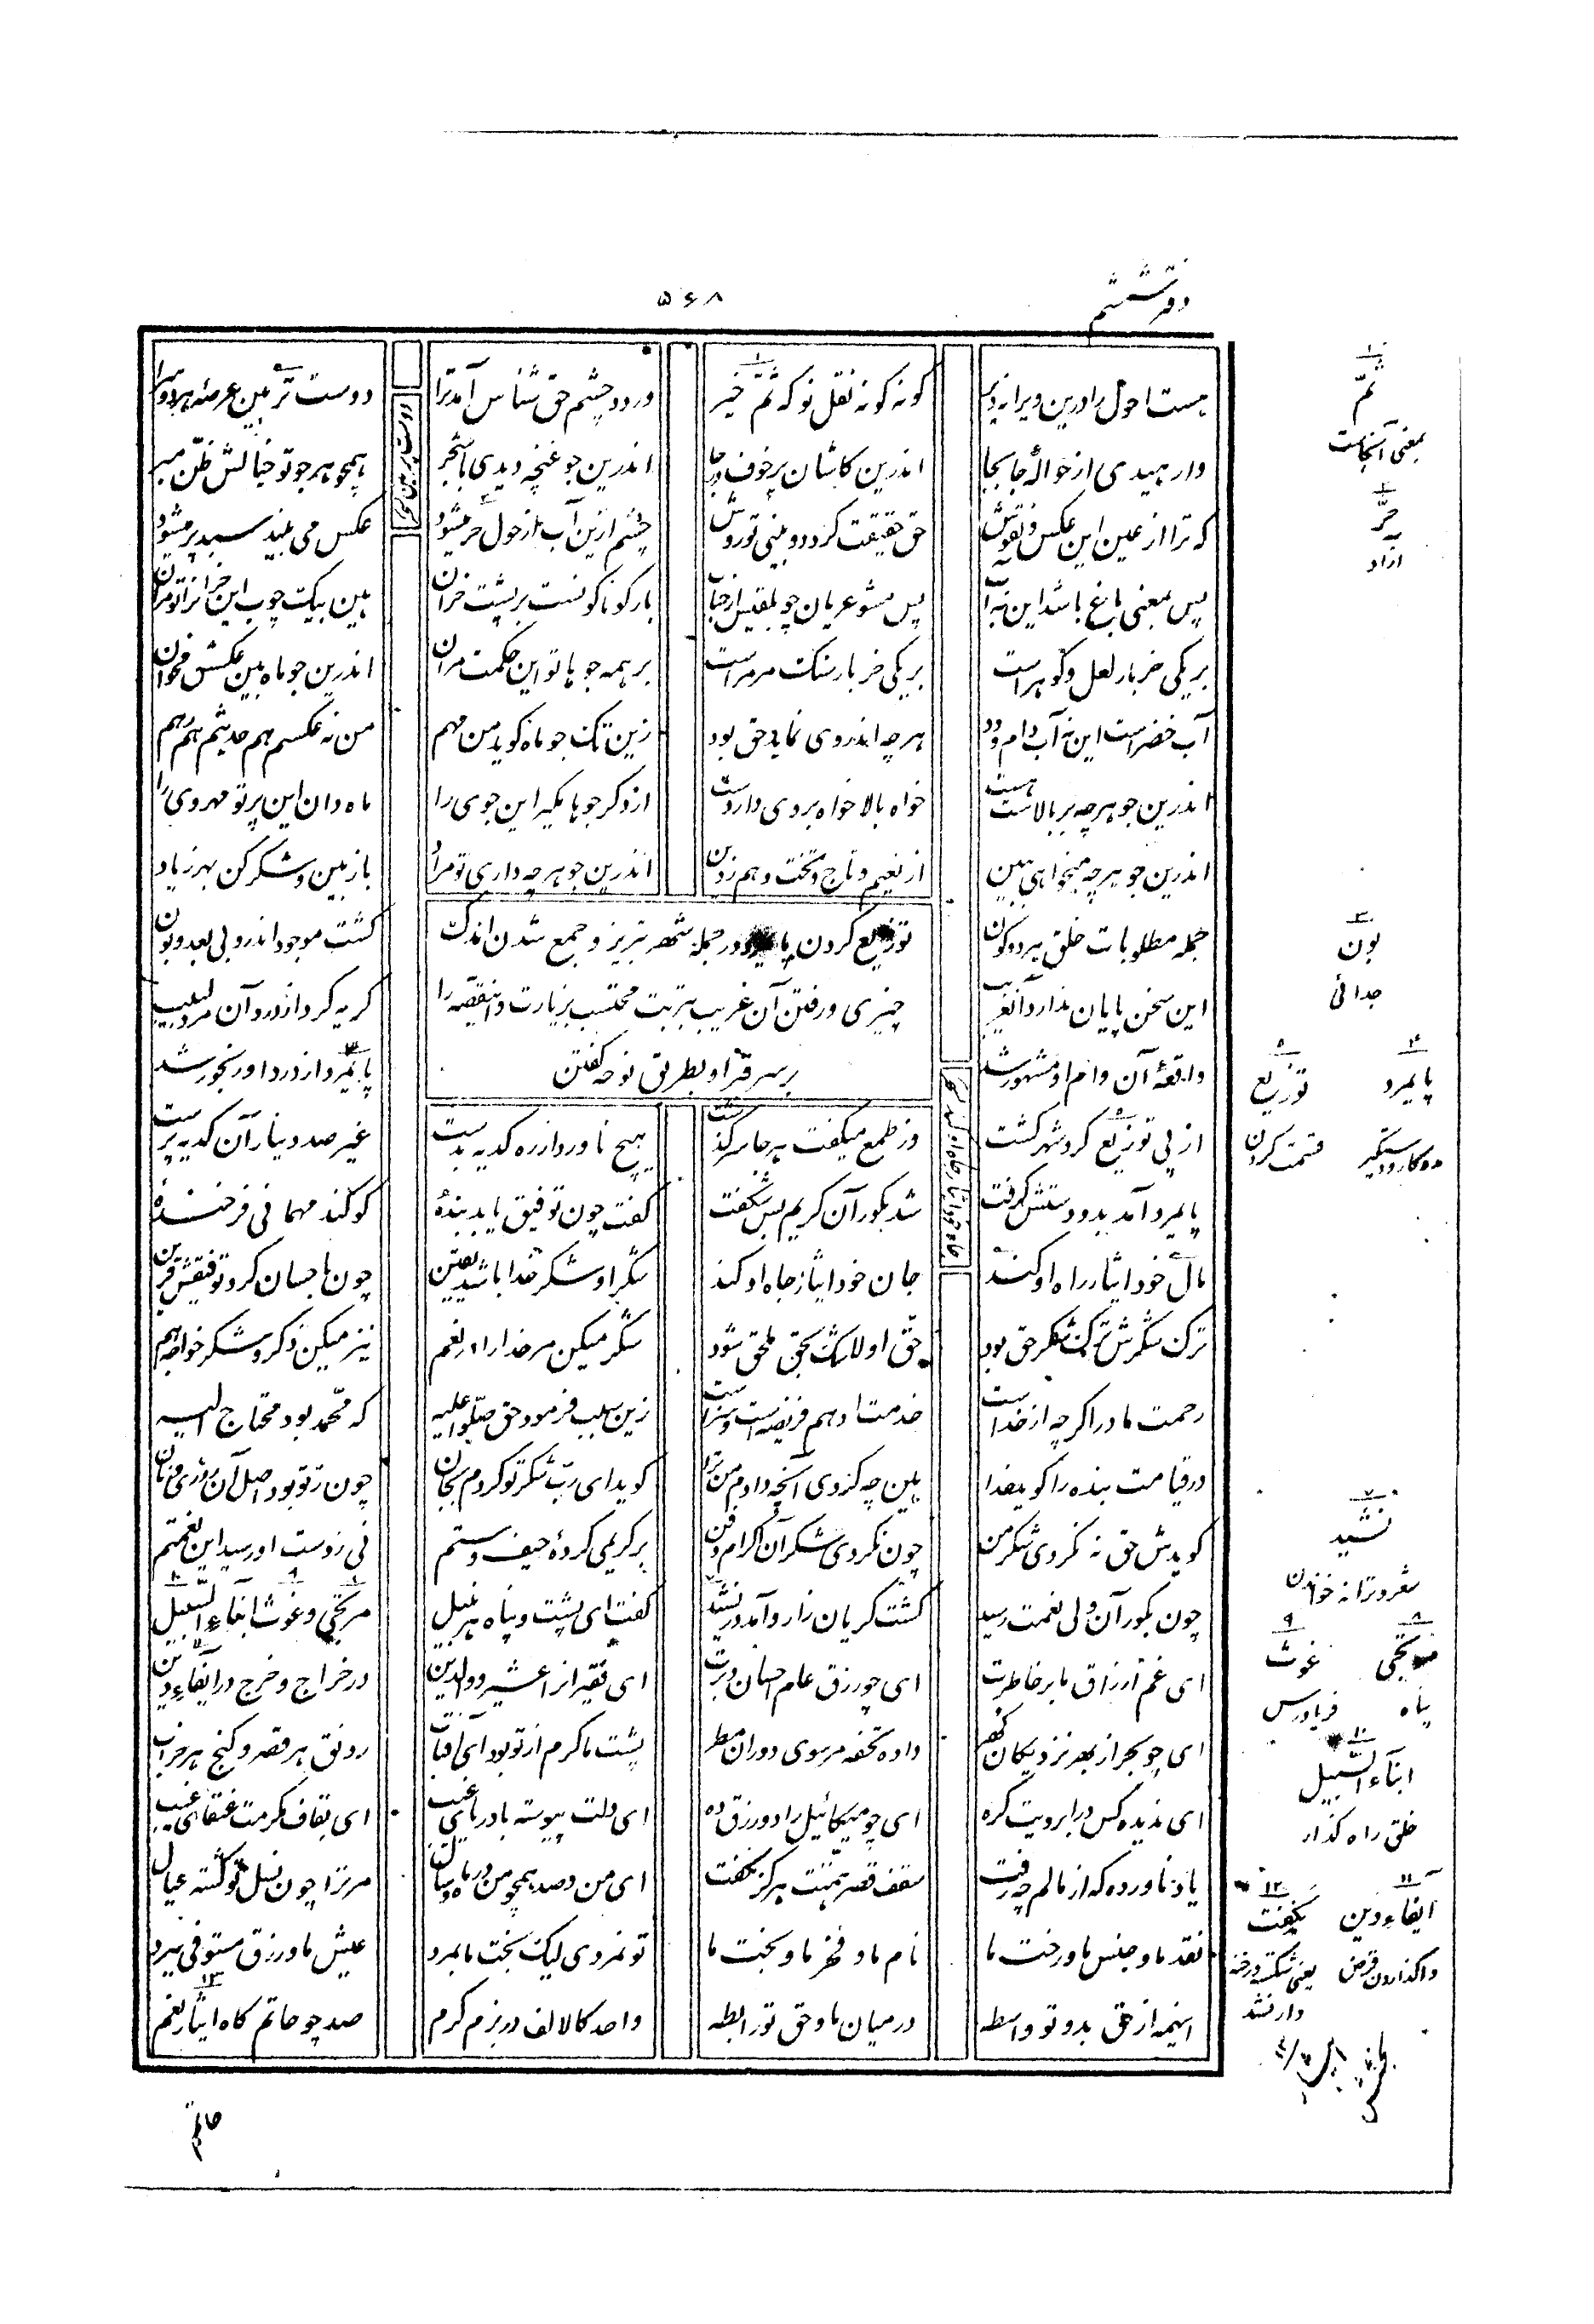 دفتر ششم
۵۶۸
هست احول را درین ویرانه دیر گونه گونه نقل نو که ثمّ خیر ور دو چشم حق شناس آمد ترا دوست پر بین عرصهٔ هر دو سرا
وارهیدی از حوالهٔ جابجا اندرین کاشان پر خوف و رجا اندرین جو غنچه دیدی یا شجر همچو هر جو تو خیالش ظنّ مبر
که ترا از عین این عکس نقوش حق حقیقت گردد و بینی تو روش چشم ازین آب از حول حر میشود عکس می بیند سبد پر میشود
پس بمعنی باغ باشد این نه آب پس مشو عریان چو بلقیس از حباب بار گوناگونست بر پشت خران هین بیک چوب این خرانرا تو مران
بر یکی خر بار لعل و گوهر است بر یکی خر بار سنگ مرمر است بر همه جوها تو این حکمت مران اندرین جو ماه بین عکسش مخوان
آب خضراست این نه آب دام و دد هر چه اندر وی نماید حق بود زین تک جو ماه گوید من مهم من نه عکسم هم حدیثم هم رهم
اندرین جو هر چه بر بالاست هست خواه بالا خواه بر وی دار دست از دگر جوها مگیر این جوی را ماه دان این پرتو مهروی را
اندرین جو هر چه میخواهی ببین از نعیم و تاج و تخت و هم زدین اندرین جو هر چه داری تو مراد باز بین و شکر کن بهر زیاد
جمله مطلوبات خلق هر دو کون گشت موجود اندرو بی بعد و بون
این سخن پایان ندارد آنغریب گریه کرد از درد آن مرد لبیب
واقعهٔ آن وام او مشهور شد پایمرد از درد او رنجور شد
توزیع کردن پایمرد در جملهٔ شهر تبریز و جمع شدن اندک
چیزی و رفتن آن غریب بتربت محتسب بزیارت و اینقصه را
بر سر قبر او بطریق نوحه گفتن
از پی توزیع گرد شهر گشت وز طمع میگفت هر جا سرگذشت هیچ ناورد از ره کدیه بدست غیر صد دینار آن کدیه پرست
پایمرد آمد بدو دستش گرفت شد بگور آن کریم بس شگفت گفت چون توفیق یابد بندهٔ کو کند مهمانی فرخندهٔ
مال خود ایثار راه او کند جان خود ایثار جاه او کند شکر او شکر خدا باشد یقین چون باحسان کرد توفیقش قرین
ترک شکرش ترک شکر حق بود حقّ او لاشک بحق ملحق شود شکر میکن مر خدا را در نعم نیز میکن ذکر و شکر خواجه هم
رحمت مادر اگر چه از خداست خدمت او هم فریضه است و سزاست زین سبب فرمود حق صلّوا علیه که محمّد بود محتاج الیه
در قیامت بنده را گوید خدا هین چه کردی آنچه دادم من ترا گوید ای ربّ شکر تو کردم بجان چون ز تو بود اصل آن روزی و نان
گویدش حق نه نکردی شکر من چون نکردی شکر آن اکرام و فن بر کریمی کردهٔ حیف و ستم نی ز دست او رسید این نعمتم
چون بگور آن ولی نعمت رسید گشت گریان زار و آمد در نشید گفت ای پشت و پناه هر نبیل مرتجی و غوث ابناء السّبیل
ای غم ارزاق ما بر خاطرت ای چو رزق عام احسان و برت ای فقیرانرا عشیر و والدین در خراج و خرج در ایفاء دین
ای چو بحر از بهر نزدیکان گهر داده تحفه مر سوی دوران مطر پشت ما گرم از تو بود ای آفتاب رونق هر قصر و گنج هر خراب
ای ندیده کس در ابرویت گره ای چو میکائیل راد و رزق ده ای دلت پیوسته با دریای غیب ای بقاف مکرمت عنقای غیب
یاد ناورده که از مالم چه رفت سقف قصر همتت هرگز نکفت ای من و صد همچو من در ماه و سال مر ترا چون نسل تو گشته عیال
نقد ما و جنس ما و رخت ما نام ما و فخر ما و بخت ما تو نمردی لیک بخت ما بمرد عیش ما و رزق مستوفی ببرد
اینهمه از حق بد و تو واسطه در میان ما و حق تو رابطه واحد کالالف در بزم کرم صد چو حاتم گاه ایثار نعم
۱ ثمّ
بمعنی آنجاست
۲ حرّ
آزاد
۳ بون
جدائی
۴ پایمرد ۵ توزیع
مددکار و دستگیر قسمت کردن
۷ نشید
شعر و ترانه خواندن
۸ مرتجی ۹ غوث
پناه فریادرس
۱۰ ابناء السّبیل
خلق راه گذار
۱۱ ایفاء دین ۱۲ نکفت
واگذاردن قرض یعنی شکسته و رخنه
دار نشد